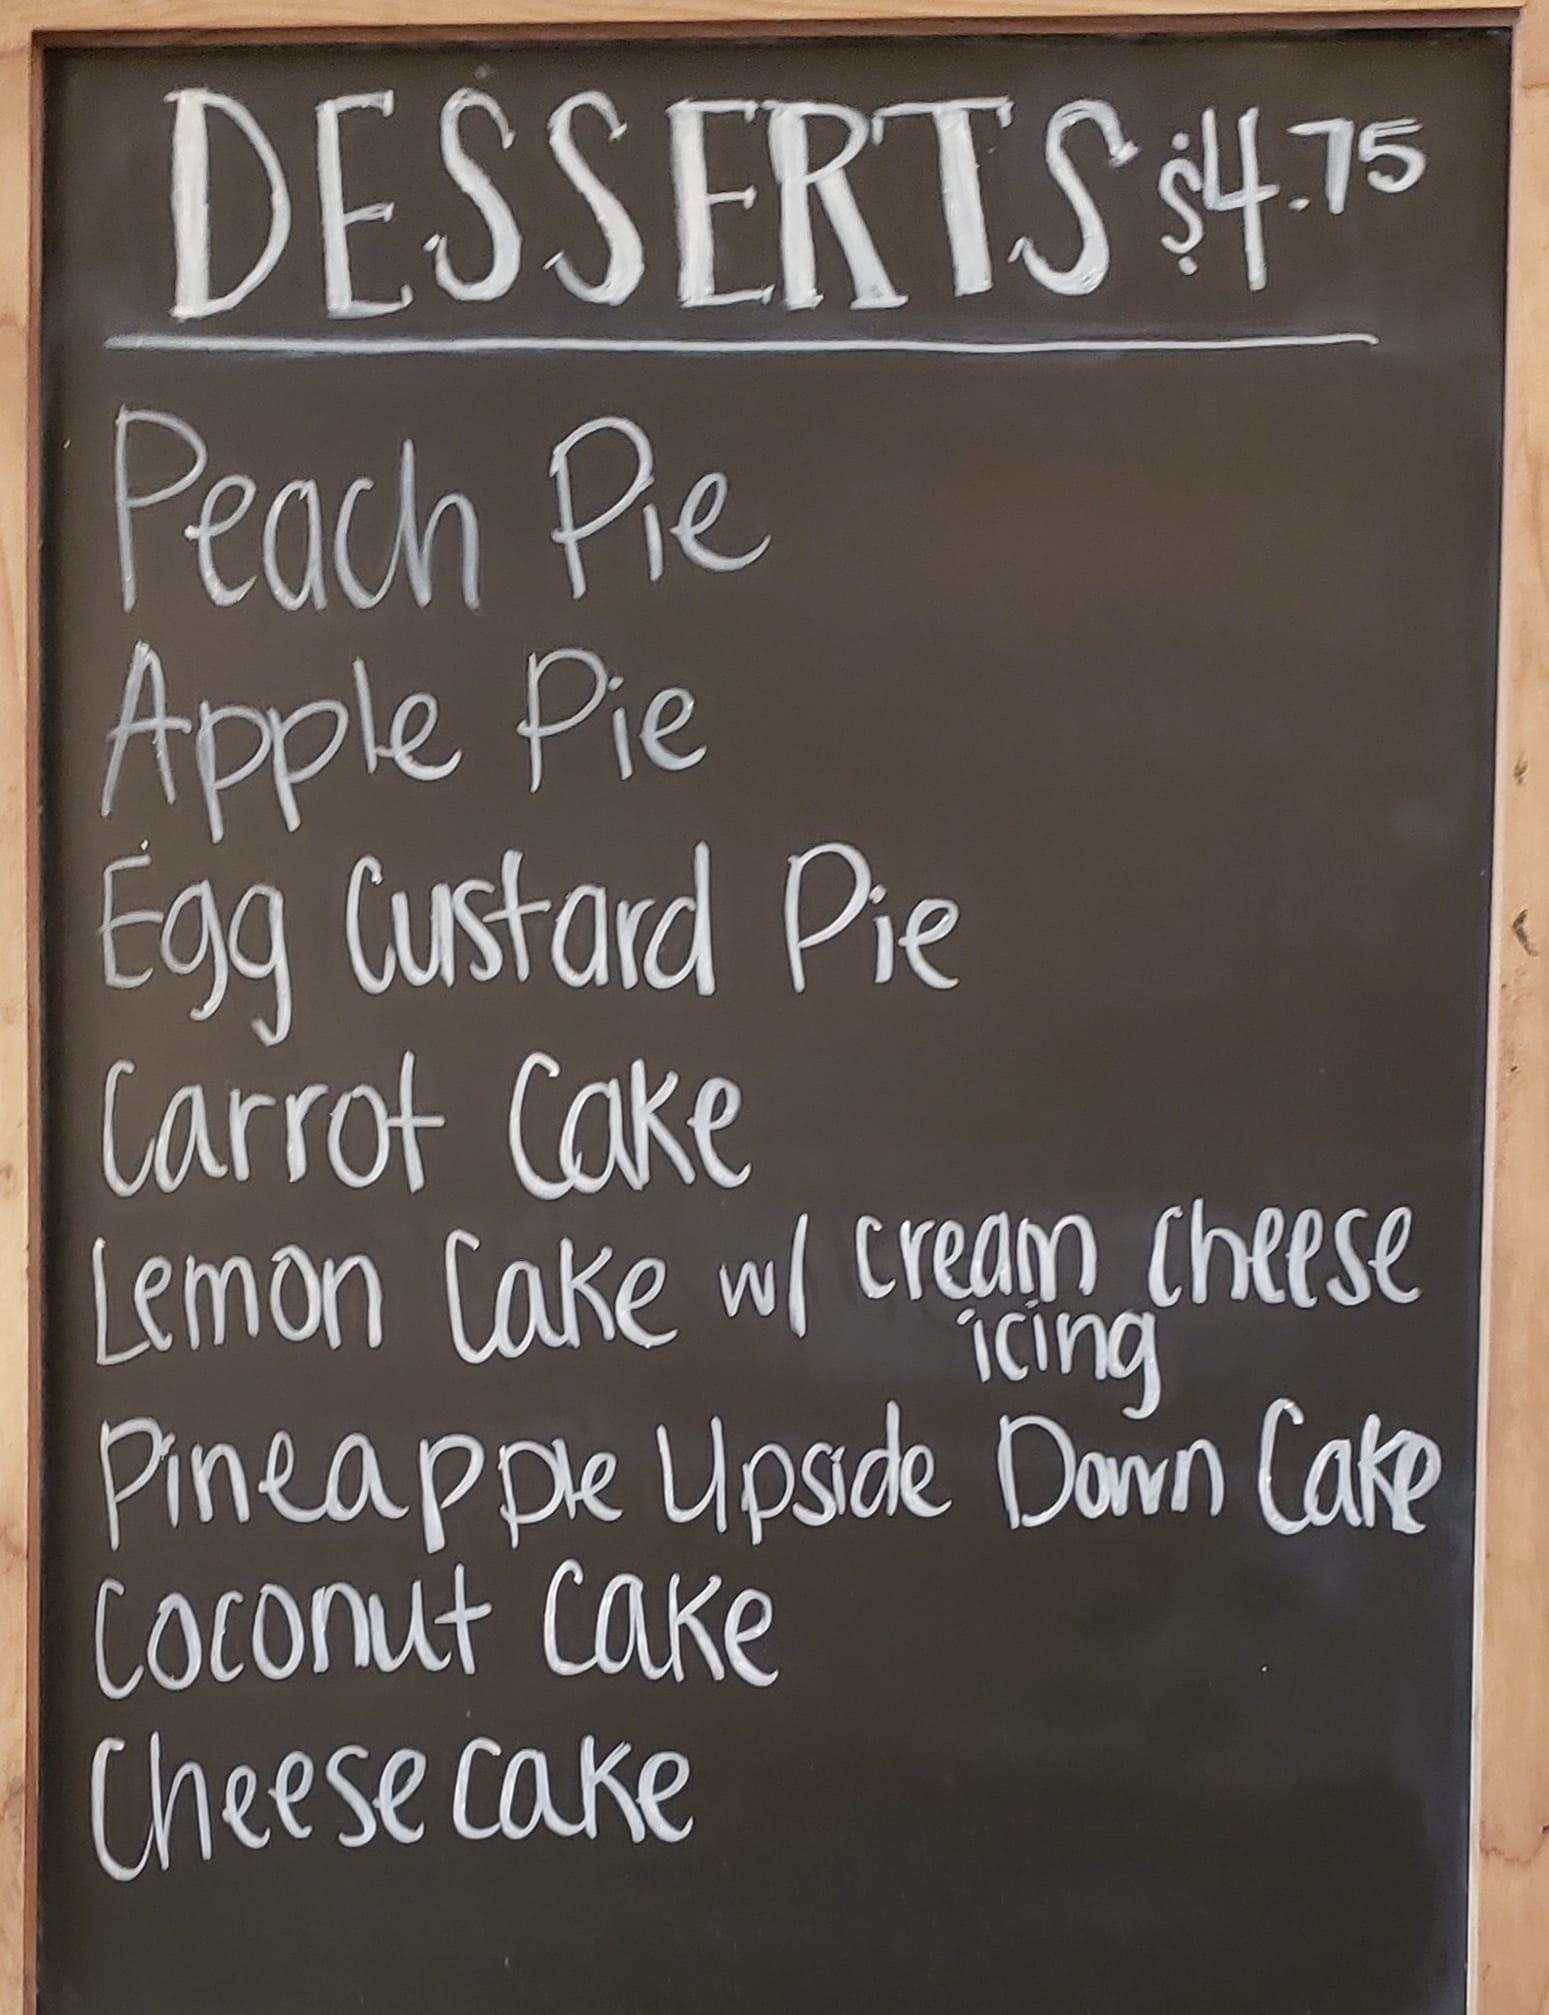 DESSERTS $4.75
Peach Pie
Apple Pie
Egg Custard Pie
Carrot Cake
Lemon Cake w/ cream cheese
icing
Pineapple Upside Down Cake
Coconut Cake
Cheesecake